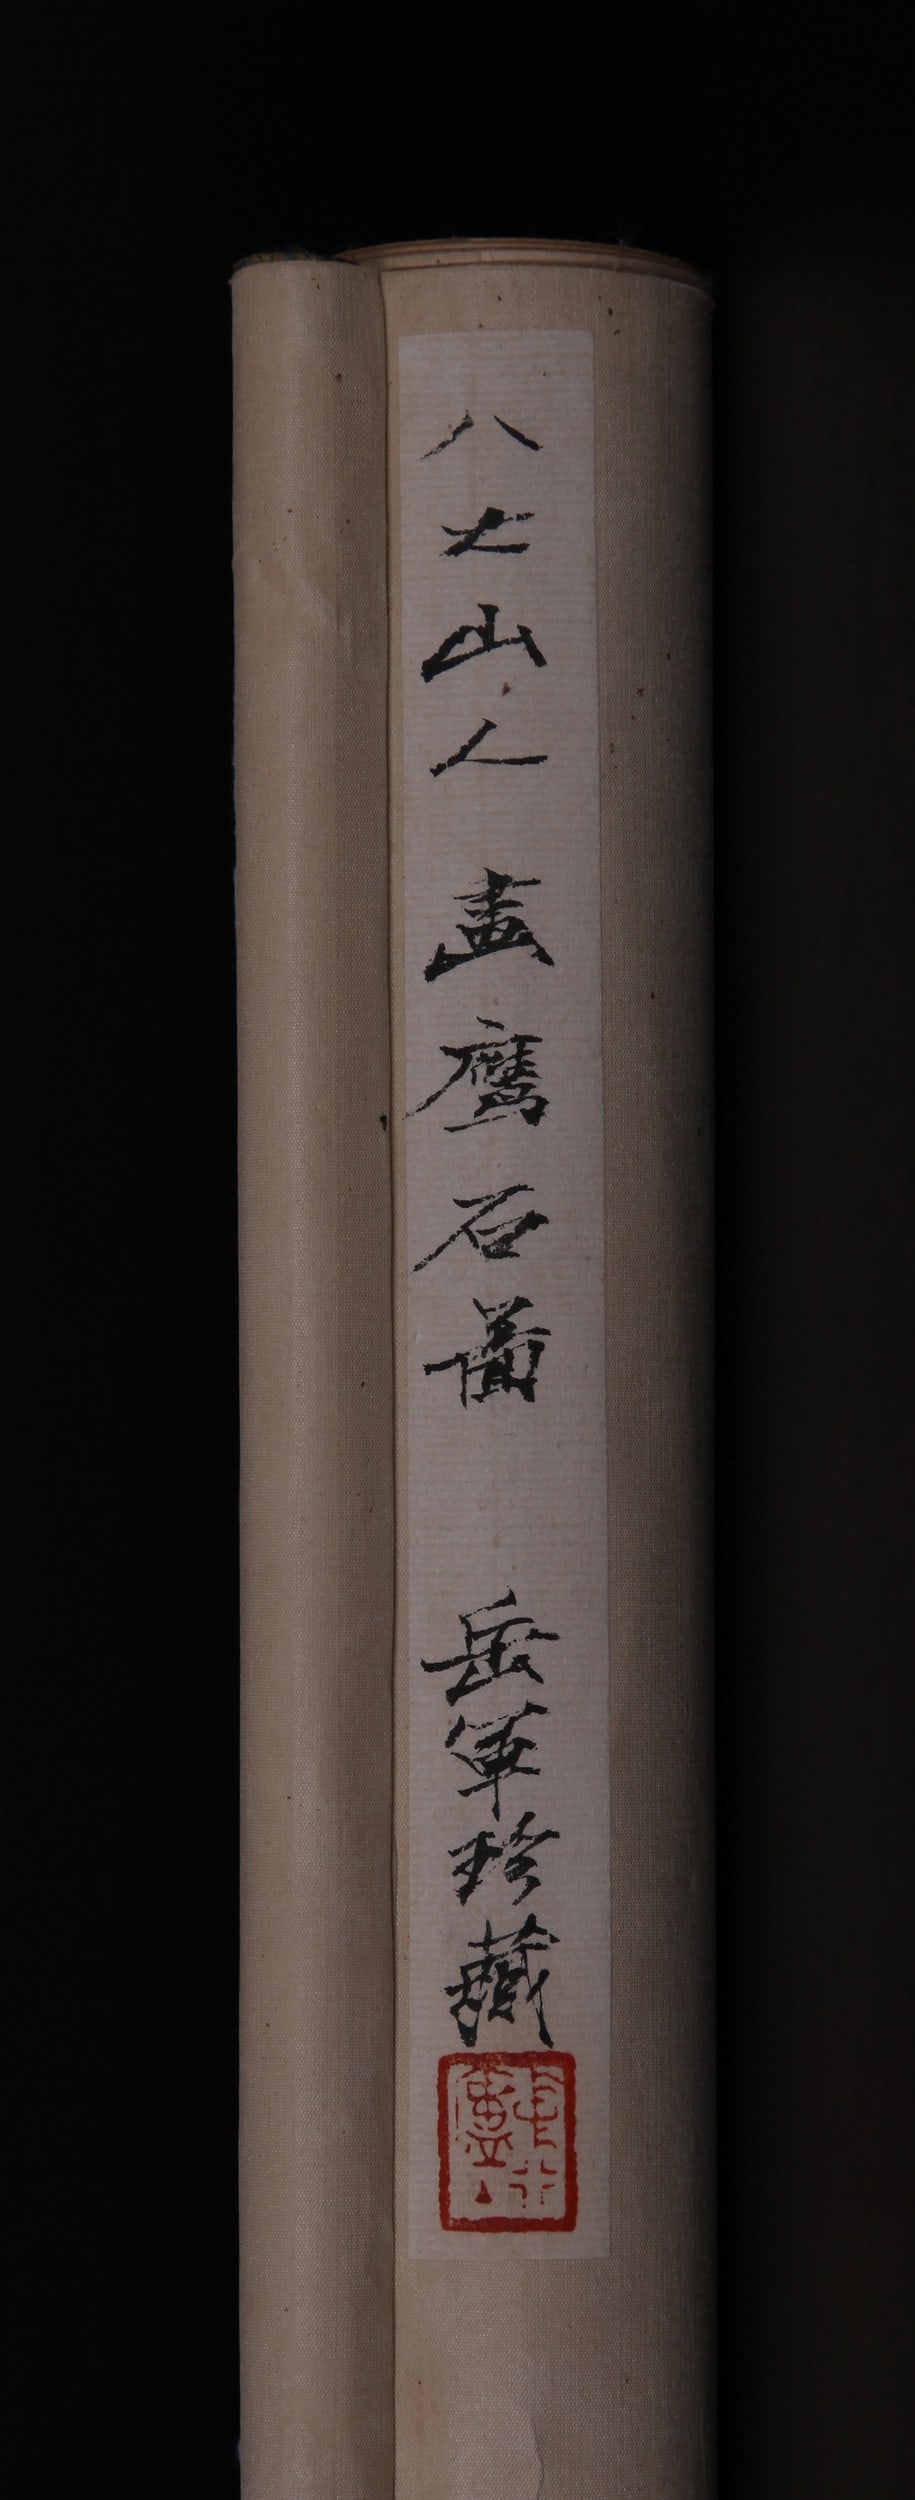 八大山人畫鷹石圖 岳軍珍藏